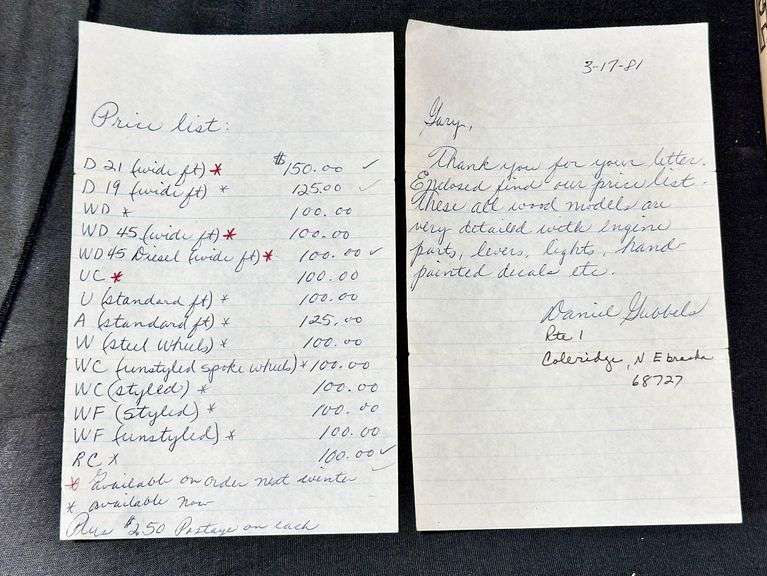 Price list:
D 21 (wide ft) * $150.00 ✓
D 19 (wide ft) * 125.00 ✓
WD * 100.00
WD 45 (wide ft) * 100.00
WD 45 Diesel (wide ft) * 100.00 ✓
UC * 100.00
U (standard ft) * 100.00
A (standard ft) * 125.00
W (steel wheels) * 100.00
WC (unstyled spoke wheels) * 100.00
WC (styled) * 100.00
WF (styled) * 100.00
WF (unstyled) * 100.00
RC x 100.00 ✓
* available on order next winter
* available now
Plus $2.50 Postage on each
3-17-81
Gary,
Thank you for your letter.
Enclosed find our price list.
These all wood models are
very detailed with engine
parts, levers, lights, hand
painted decals etc.
Daniel Gubbels
Rte 1
Coleridge, NEbraska
68727